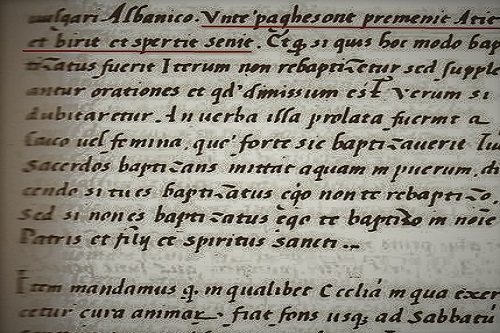 uulgari Albanico. Vnte' paghesont premenit Atit
et birit et spertit senit. Etq, si quis hoc modo bap
tizatus fuerit Iterum non rebaptizetur sed supple
antur orationes et qd' dimissum est. Verum si
dubitaretur. An uerba illa prolata fuerint a
laico uel femina, que' forte sic baptizauerit
Sacerdos baptizans mittat aquam in puerum, di
cendo si tu es baptizatus ego non te rebaptizo,
sed si non es baptizatus ego te baptizo in noie
Patris et filij et spiritus sancti ...
Item mandamus q. in qualibet Ecclia in qua exer
cetur cura animar fiat fons usq, ad Sabbatu